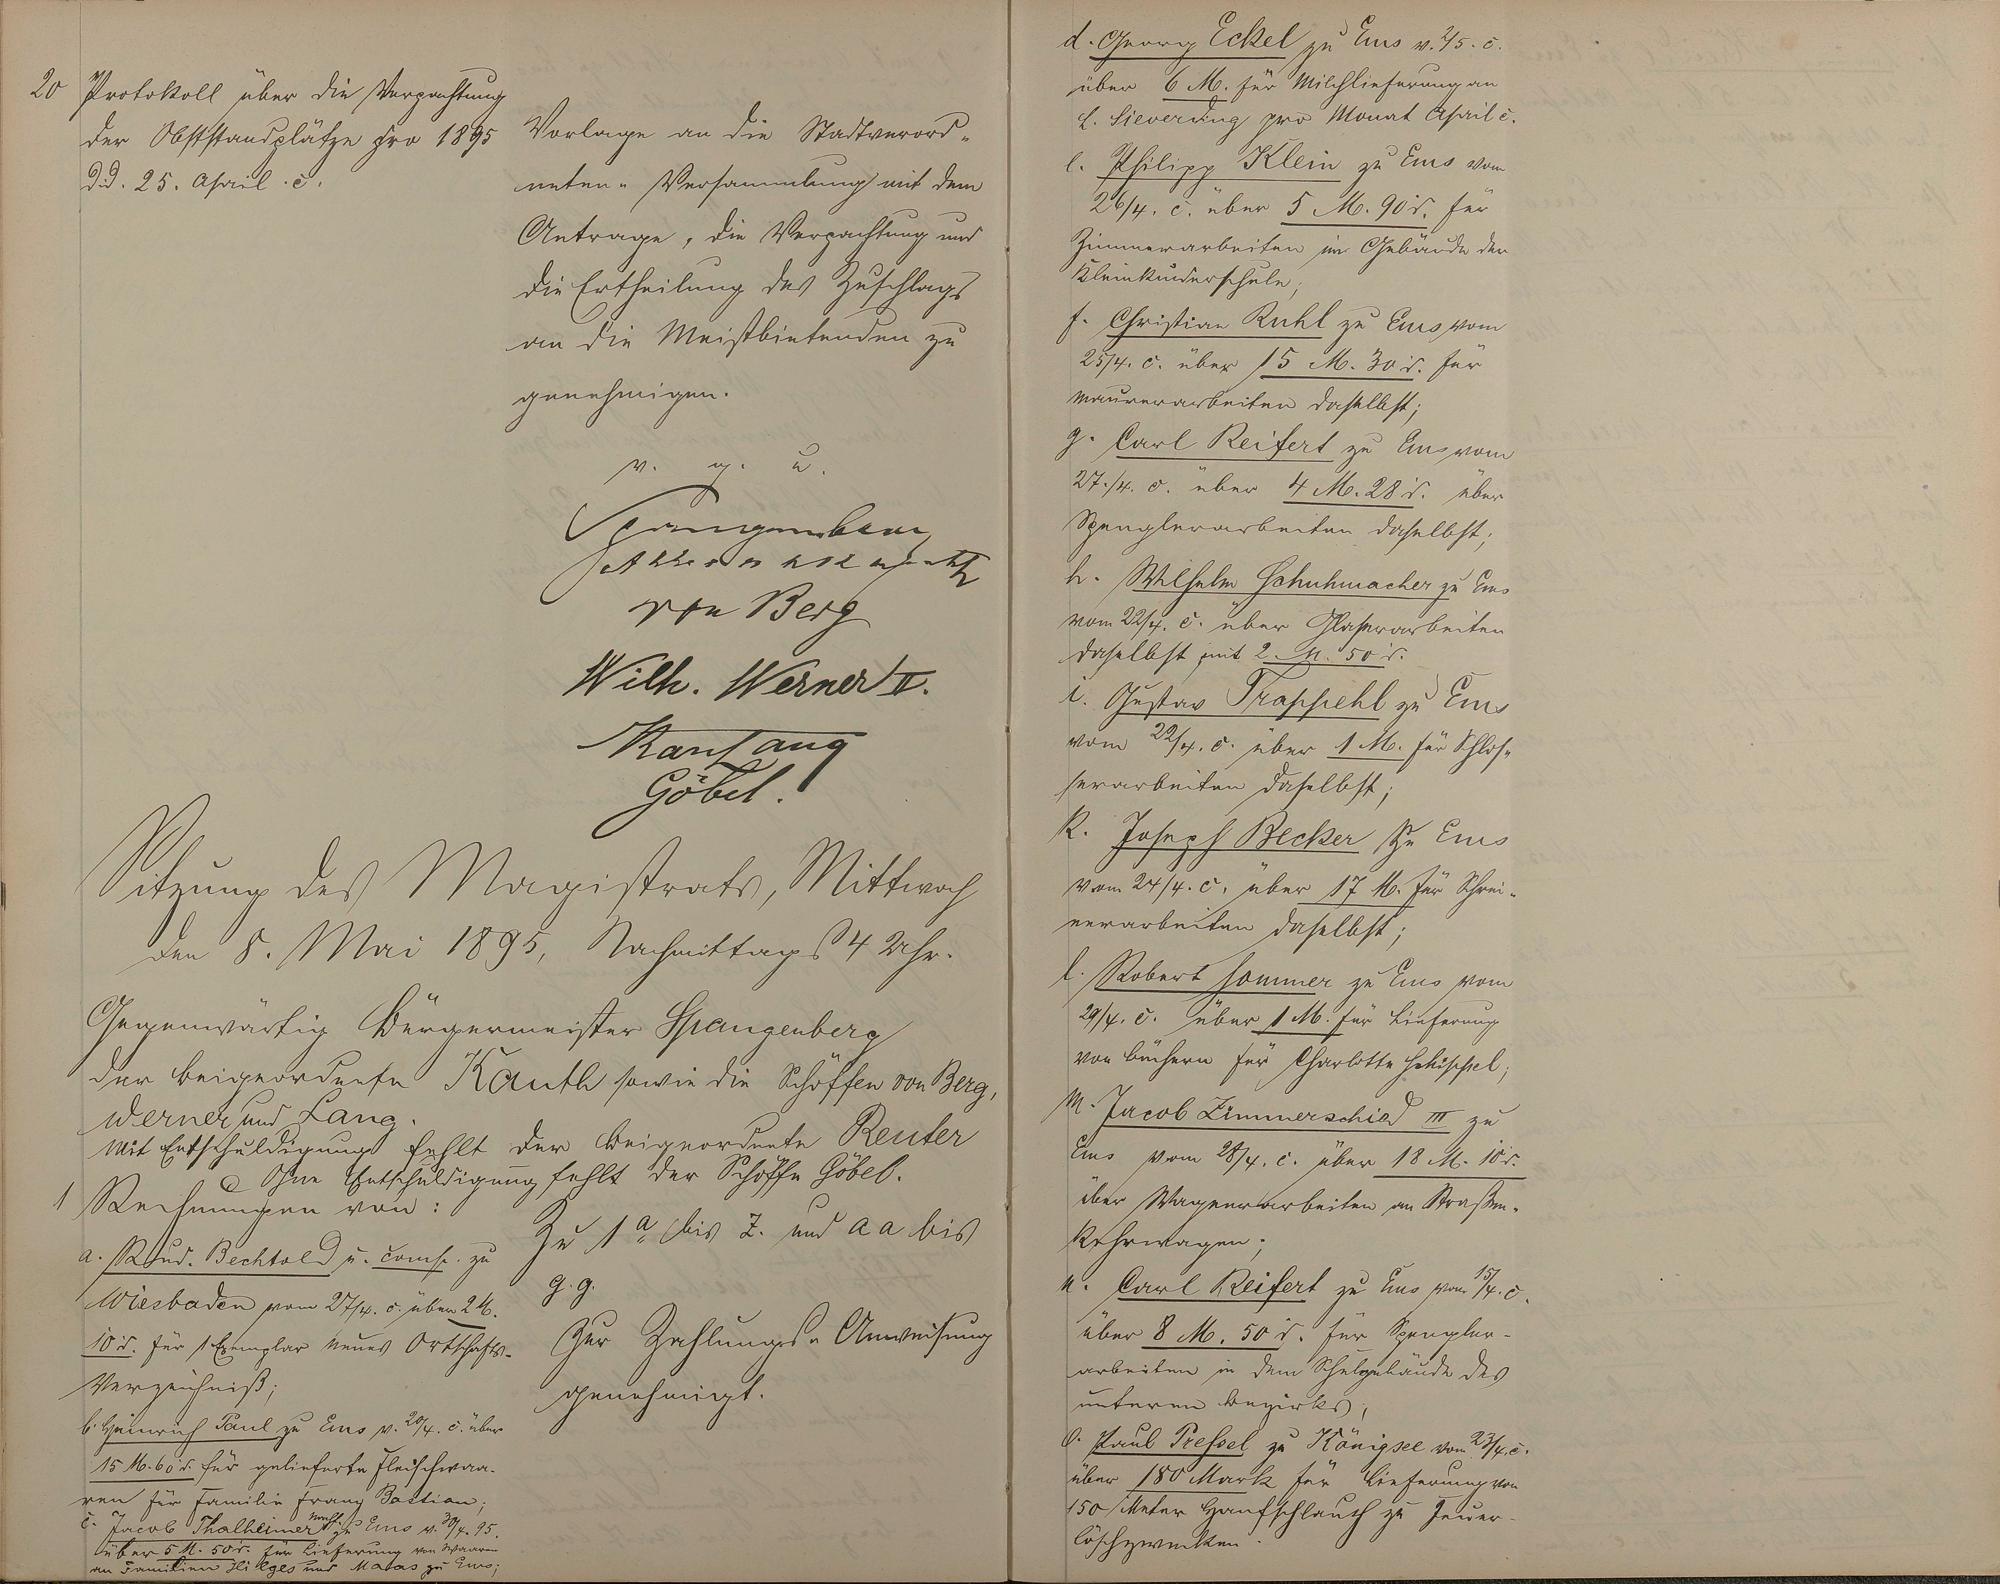 20 Protokoll über die Verpachtung
der Obststandplätze pro 1895
d.d. 25. April c.
Vorlage an die Stadtverord-
neten-Versammlung mit dem
Antrage, die Verpachtung und
die Ertheilung des Zuschlags
an die Meistbietenden zu
genehmigen.
v. g. u.
Spangenberg
von Berg
Wilh. Werner II.
Lang
Göbel.
Sitzung des Magistrats, Mittwoch
den 8. Mai 1895, Nachmittags 4 Uhr.
Gegenwärtig Bürgermeister Spangenberg
der Beigeordnete Kauth sowie die Schöffen von Berg,
Werner und Lang.
Mit Entschuldigung fehlt der Beigeordnete Reuter
Ohne Entschuldigung fehlt der Schöffe Göbel.
1 Rechnungen von:
a. Rud. Bechtold u. Comp. zu
Wiesbaden vom 27/4. c. über 2 M.
10 d. für 1 Exemplar neues Ortschafts-
Verzeichniß;
b. Heinrich Paul zu Ems v. 20/4. c. über
15 M. 60 d. für gelieferte Fleischwaa-
ren für Familie Franz Bastian;
c. Jacob Thalheimer Nachf. zu Ems v. 30/4. 95.
über 5 M. 50 d. für Lieferung von Waaren
an Familien Hilges und Maas zu Ems;
Zu 1 a bis z. und aa bis
g.g.
Zur Zahlungs-Anweisung
genehmigt.
d. Georg Eckel zu Ems v. 2/5. c.
über 6 M. für Milchlieferung an
L. Sieverding pro Monat April c.
e. Philipp Klein zu Ems vom
26/4. c. über 5 M. 90 d. für
Zimmerarbeiten im Gebäude der
Kleinkinderschule;
f. Christian Ruhl zu Ems vom
25/4. c. über 15 M. 30 d. für
Maurerarbeiten daselbst;
g. Carl Reifert zu Ems vom
27./4. c. über 4 M. 28 d. über
Spenglerarbeiten daselbst;
h. Wilhelm Schuhmacher zu Ems
vom 22/4. c. über Glaserarbeiten
daselbst mit 2 M. 50 d.
i. Gustav Trappehl zu Ems
vom 22/4. c. über 1 M. für Schlos-
serarbeiten daselbst;
k. Joseph Becker zu Ems
vom 24/4. c. über 17 M. für Schrei-
nerarbeiten daselbst;
l. Robert Sommer zu Ems vom
29/4. c. über 1 M. für Lieferung
von Büchern für Charlotte
m. Jacob Zimmerschied III zu
Ems vom 28/4. c. über 18 M. 10 d.
über Wagnerarbeiten an Straßen-
kehrwagen;
n. Carl Reifert zu Ems vom 15/4. c.
über 8 M. 50 d. für Spengler-
arbeiten in dem Schulgebäude des
unteren Bezirks;
o. Paul Pressel zu Königsee vom 23/4. c.
über 180 Mark für Lieferung von
150 Meter Hanfschlauch zu Feuer-
löschzwecken.